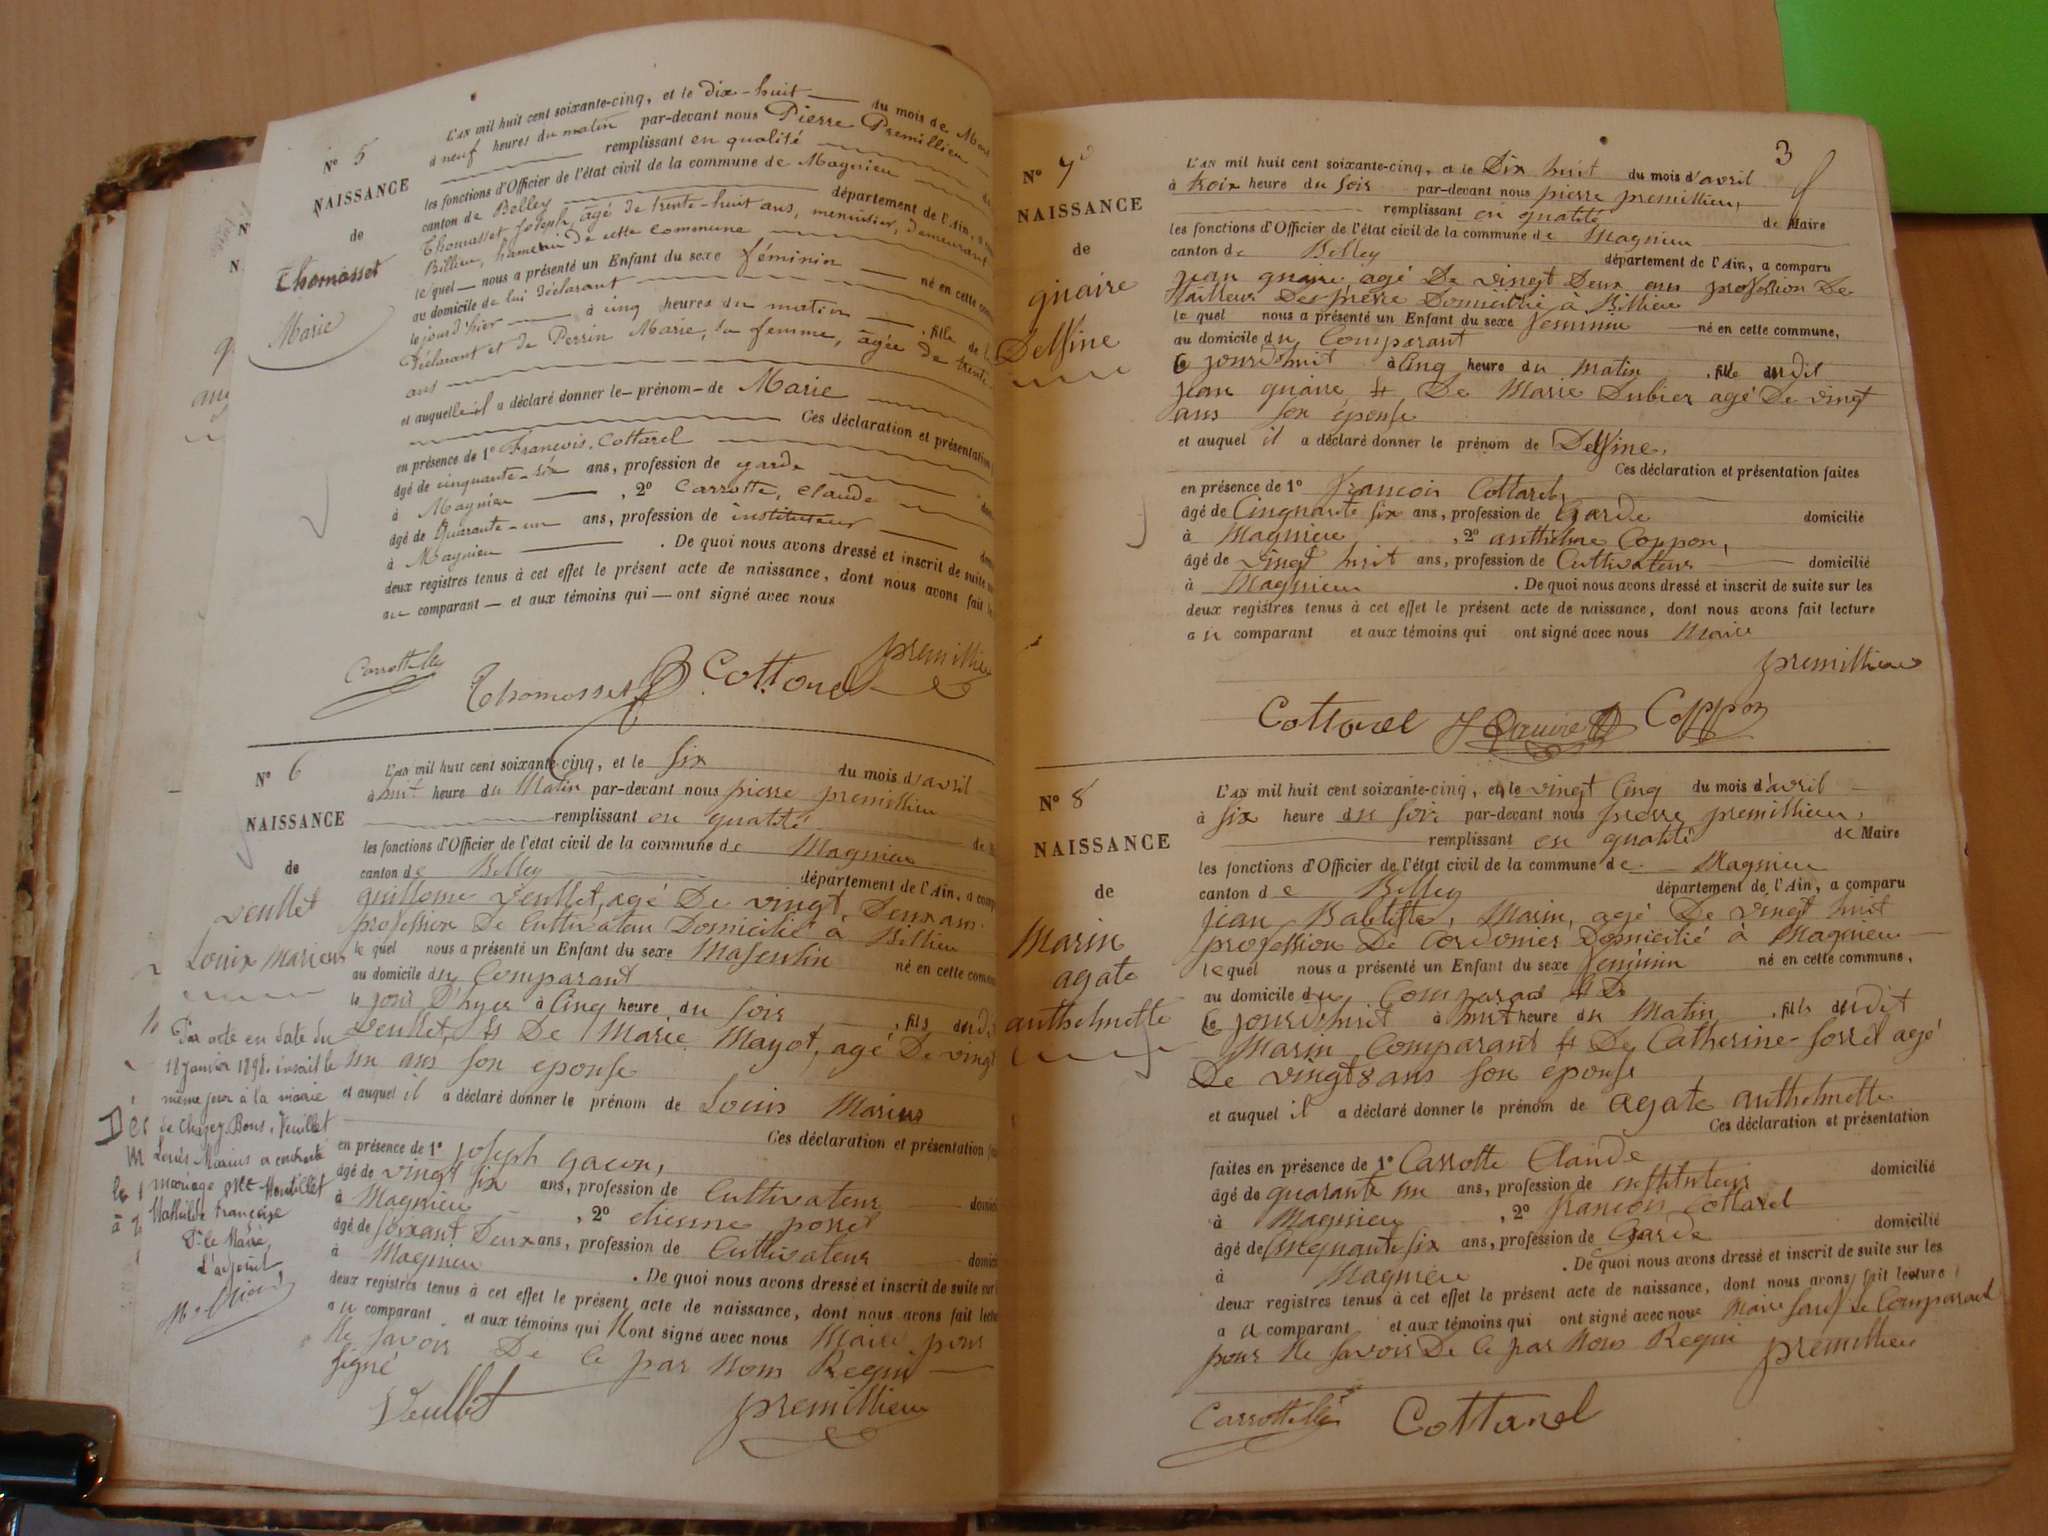 N° 5
NAISSANCE
de
Thomasset
Marie
L'AN mil huit cent soixante-cinq, et le dix-huit du mois de
à neuf heures du matin par-devant nous Pierre Premillieu
remplissant en qualité
les fonctions d'Officier de l'état civil de la commune de Magnieu
canton de Belley département de l'Ain,
Thomasset Joseph, âgé de trente-huit ans, menuisier, demeurant
Billieu, hameau de cette commune
le quel nous a présenté un Enfant du sexe féminin né en cette
au domicile de lui déclarant
le jourd'hier à cinq heures du matin , fille de
déclarant et de Perrin Marie, sa femme, âgée de trente
ans
et auquel il a déclaré donner le prénom de Marie
Ces déclaration et présentation
en présence de 1° François Cottarel
âgé de cinquante-six ans, profession de garde
à Magnieu , 2° Carrotte, Claude
âgé de Quarante-un ans, profession de instituteur
à Magnieu . De quoi nous avons dressé et inscrit de suite
deux registres tenus à cet effet le présent acte de naissance, dont nous avons fait
au comparant et aux témoins qui ont signé avec nous
Thomasset Cottarel premillieu
N° 6
NAISSANCE
de
veullet
Louis Marius
L'AN mil huit cent soixante-cinq, et le six du mois d'avril
à huit heure du Matin par-devant nous pierre premillieu
remplissant en qualité
les fonctions d'Officier de l'état civil de la commune de Magnieu
canton de Belley département de l'Ain, a comp
guillome veullet, agé De vingt Deux ans
profession De Cultivateur Domicilié à Billieu
le quel nous a présenté un Enfant du sexe Masculin né en cette
au domicile du Comparant
le jour D'hyer à Cinq heure du soir , fils dudi
veullet, & De Marie Mayot, agé De vingt
un ans son eponse
et auquel il a déclaré donner le prénom de Louis Marius
Ces déclaration et présentation
en présence de 1° joseph gacon,
âgé de vingt six ans, profession de Cultivateur
à Magnieu , 2° etienne
âgé de soixant Deux ans, profession de Cultivateur
à Magnieu . De quoi nous avons dressé et inscrit de suite sur
deux registres tenus à cet effet le présent acte de naissance, dont nous avons fait
au comparant et aux témoins qui Nont signé avec nous Maire pour
Ne savoir De Ce par Nous Requi
signé
Veullet premillieu
Par acte en date du
18 janvier 1898 inscrit le
même jour à la mairie
de Chazey-Bons, Veuillet
Louis Marius a contracté
mariage
Mathilde Françoise
Pr le Maire,
L'adjoint
3
N° 7
NAISSANCE
de
gnaire
Delfine
L'AN mil huit cent soixante-cinq, et le Dix huit du mois d'avril
à troix heure du soir par-devant nous pierre premillieu,
remplissant en qualité de Maire
les fonctions d'Officier de l'état civil de la commune de Magnieu
canton de Belley département de l'Ain, a comparu
jean gnaire agé De vingt Deux ans profession De
tailleur Des pierre Domicilié à Billieu
le quel nous a présenté un Enfant du sexe feminin né en cette commune,
au domicile du Comparant
Ce jourdhuit à Cinq heure du Matin , fille dudit
jean gnaire & De Marie Dubier agé De vingt
ans son eponse
et auquel il a déclaré donner le prénom de Delfine,
Ces déclaration et présentation faites
en présence de 1° françois Cottarel,
âgé de Cinquante six ans, profession de garde domicilié
à Magnieu , 2° anthelme Coppon,
âgé de vingt huit ans, profession de Cultivateur domicilié
à Magnieu . De quoi nous avons dressé et inscrit de suite sur les
deux registres tenus à cet effet le présent acte de naissance, dont nous avons fait lecture
au comparant et aux témoins qui ont signé avec nous Maire
premillieu
Cottarel Coppon
N° 8
NAISSANCE
de
Marin
agate
anthelmette
L'AN mil huit cent soixante-cinq, et le vingt Cinq du mois d'avril
à six heure du soir par-devant nous pierre premillieu,
remplissant en qualité de Maire
les fonctions d'Officier de l'état civil de la commune de Magnieu
canton de Belley département de l'Ain, a comparu
jean Babtiste, Marin, agé De vingt huit
profession De Cordonier Domicilié à Magnieu
le quel nous a présenté un Enfant du sexe feminin né en cette commune,
au domicile du Comparant & De
Ce jourdhuit à huit heure du Matin , fils dudit
Marin Comparant & De Catherine agé
De vingt 8 ans son eponse
et auquel il a déclaré donner le prénom de agate anthelmette
Ces déclaration et présentation
faites en présence de 1° Carrotte Claude
âgé de quarante un ans, profession de instituteur domicilié
à Magnieu , 2° françois Cottarel
âgé de Cinquante six ans, profession de garde domicilié
à Magnieu . De quoi nous avons dressé et inscrit de suite sur les
deux registres tenus à cet effet le présent acte de naissance, dont nous avons fait lecture
au comparant et aux témoins qui ont signé avec nous Maire sauf le Comparant
pour Ne savoir De Ce par Nous Requi premillieu
Cottarel